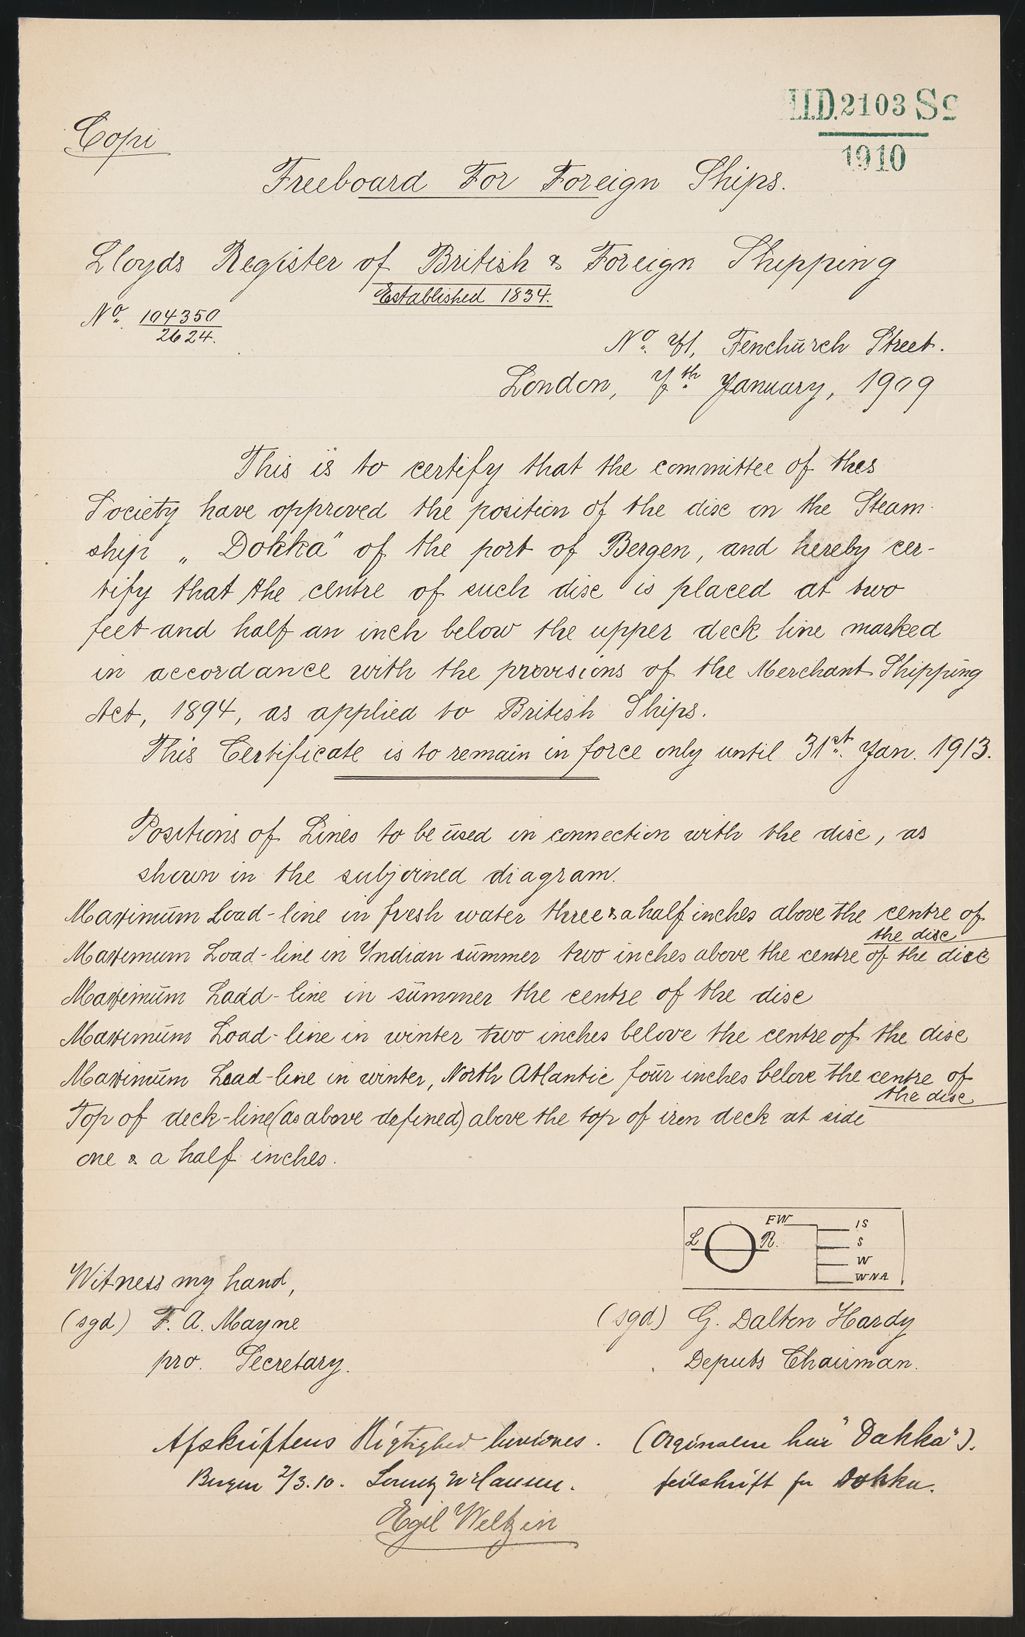 H.D. 2103 Sc
1910
Copi
Freeboard For Foreign Ships.
Lloyds Register of British & Foreign Shipping
Established 1834.
No. 104350
2624.
No. 71, Fenchurch Street.
London, 7th January, 1909
This is to certify that the committee of thes
Society have approved the position of the disc on the Steam-
ship „Dokka" of the port of Bergen, and hereby cer-
tify that the centre of such disc is placed at two
feet and half an inch below the upper deck line marked
in accordance with the provisions of the Merchant Shipping
Act, 1894, as applied to British Ships.
This Certificate is to remain in force only until 31st. Jan. 1913.
Positions of Lines to be used in connection with the disc, as
shown in the subjoined diagram.
Maximum Load-line in fresh water three & a half inches above the centre of
the disc
Maximum Load-line in Indian summer two inches above the centre of the disc
Maximum Ladd-line in summer the centre of the disc
Maximum Load-line in winter two inches belove the centre of the disc
Maximum Load-line in winter, North Atlantic four inches belove the centre of
the disc
Top of deck-line (as above defined) above the top of iron deck at side
one & a half inches.
FW IS
L R. S
W
WNA
Witness my hand,
(sgd) F. A. Mayne
pro. Secretary.
(sgd) G. Dalton Hardy
Deputs Chairman.
Afskriftens Rigtighed bevidnes. (Orginalen har "Dakka").
Bergen 2/3.10. feilskrift for Dokka.
Egil Weltzin